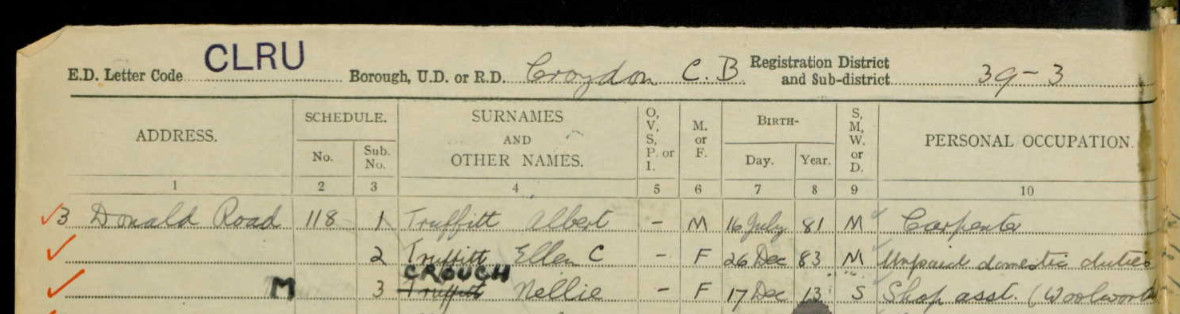 E.D. Letter Code CLRU Borough, U.D. or R.D. Croydon C.B Registration District and Sub-district 39-3
ADDRESS. SCHEDULE. No. Sub. No. SURNAMES AND OTHER NAMES. O, V, S, P. or I. M. or F. BIRTH- Day. Year. S, M, W. or D. PERSONAL OCCUPATION.
1 2 3 4 5 6 7 8 9 10
3 Donald Road 118 1 Truffitt Albert - M 16 July 81 M Carpenter
2 Truffitt Ellen C - F 26 Dec 83 M Unpaid domestic duties
CROUCH
M 3 Truffitt Nellie - F 17 Dec 13 S Shop asst. (Woolworth